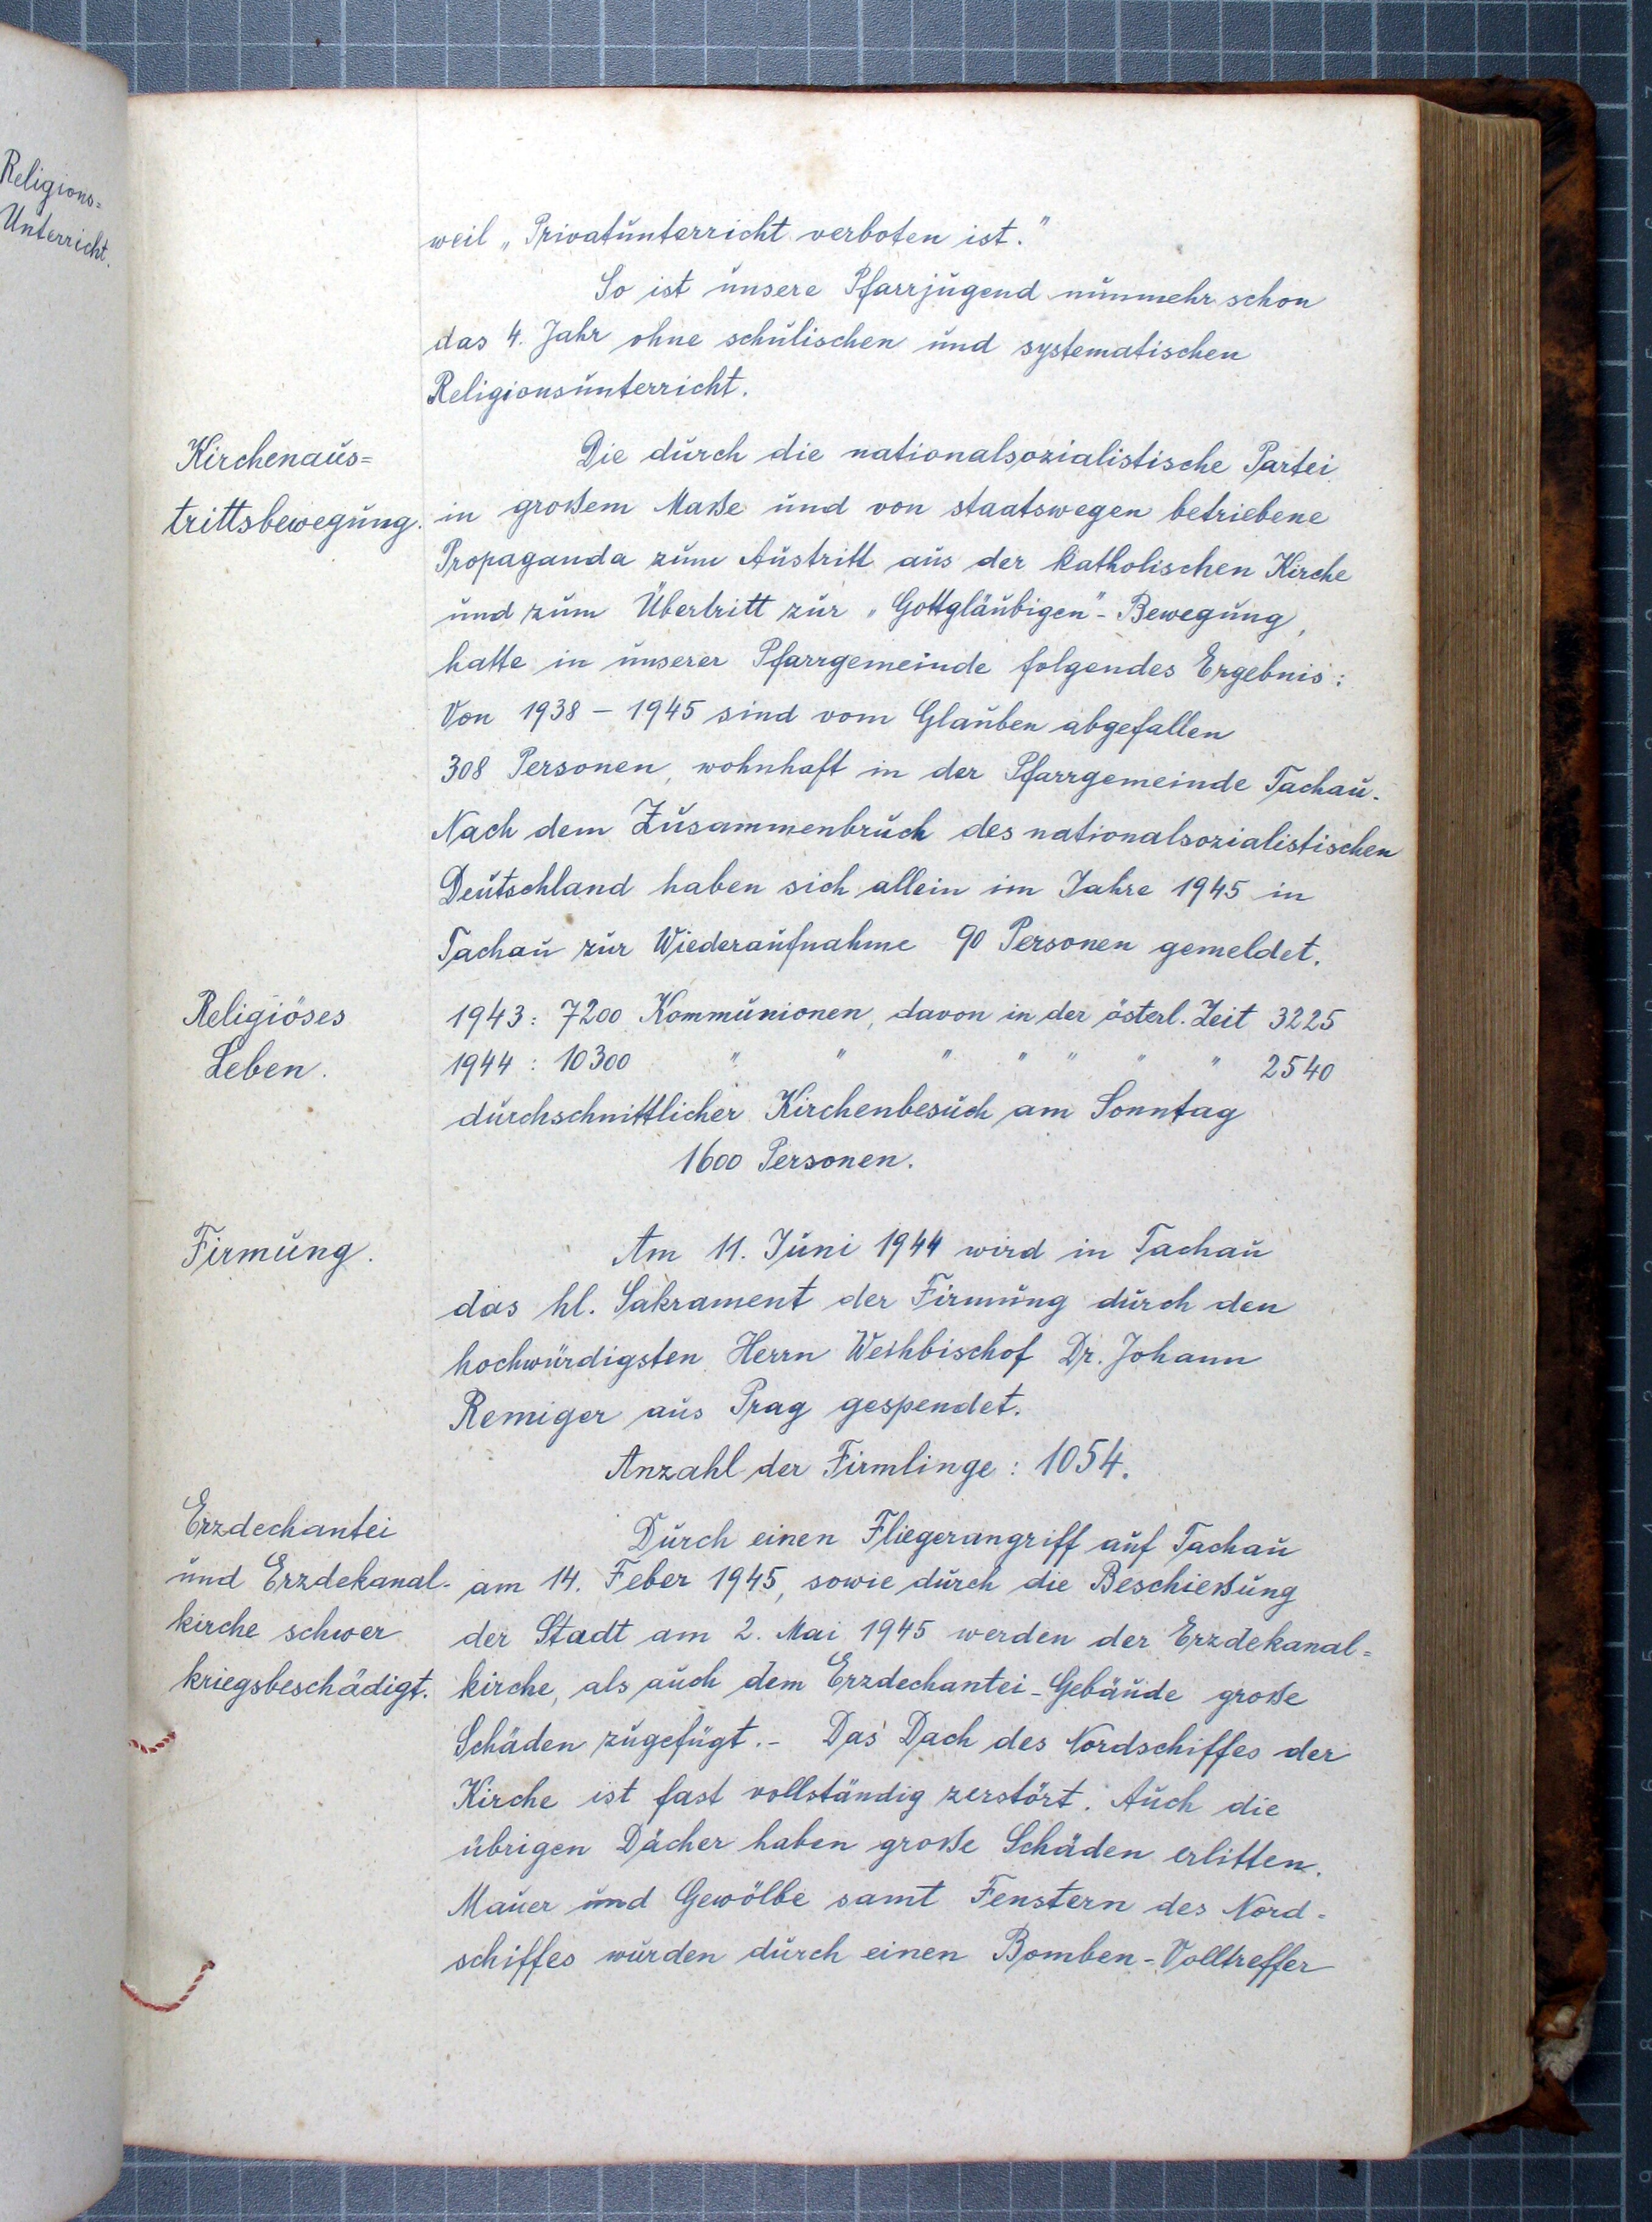 Religions=
Unterricht.
weil „Privatunterricht verboten ist."
So ist unsere Pfarrjugend nunmehr schon
das 4. Jahr ohne schulischen und systematischen
Religionsunterricht.
Kirchenaus=
trittsbewegung.
Die durch die nationalsozialistische Partei
in großem Maße und von staatswegen betriebene
Propaganda zum Austritt aus der katholischen Kirche
und zum Übertritt zur „Gottgläubigen"-Bewegung,
hatte in unserer Pfarrgemeinde folgendes Ergebnis:
Von 1938 – 1945 sind vom Glauben abgefallen
308 Personen, wohnhaft in der Pfarrgemeinde Tachau.
Nach dem Zusammenbruch des nationalsozialistischen
Deutschland haben sich allein im Jahre 1945 in
Tachau zur Wiederaufnahme 90 Personen gemeldet.
Religiöses
Leben.
1943: 7200 Kommunionen, davon in der österl. Zeit 3225
1944: 10300 " " " " " " " 2540
durchschnittlicher Kirchenbesuch am Sonntag
1600 Personen.
Firmung.
Am 11. Juni 1944 wird in Tachau
das hl. Sakrament der Firmung durch den
hochwürdigsten Herrn Weihbischof Dr. Johann
Remiger aus Prag gespendet.
Anzahl der Firmlinge: 1054.
Erzdechantei
und Erzdekanal-
kirche schwer
kriegsbeschädigt.
Durch einen Fliegerangriff auf Tachau
am 14. Feber 1945, sowie durch die Beschießung
der Stadt am 2. Mai 1945 werden der Erzdekanal=
kirche, als auch dem Erzdechantei-Gebäude große
Schäden zugefügt.- Das Dach des Nordschiffes der
Kirche ist fast vollständig zerstört. Auch die
übrigen Dächer haben große Schäden erlitten.
Mauer und Gewölbe samt Fenstern des Nord-
schiffes wurden durch einen Bomben-Volltreffer